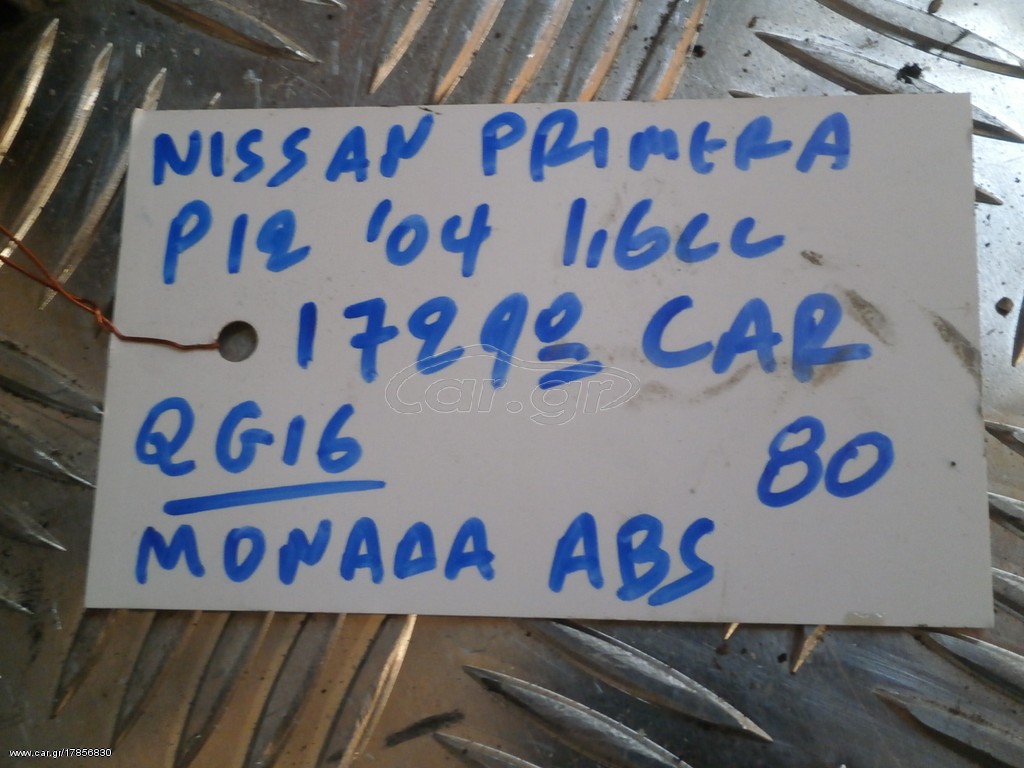 NISSAN PRIMERA
P12 '04 1,6cc
17290 CAR
QG16 80
ΜΟΝΑΔΑ ABS
car.gr
www.car.gr/17856830